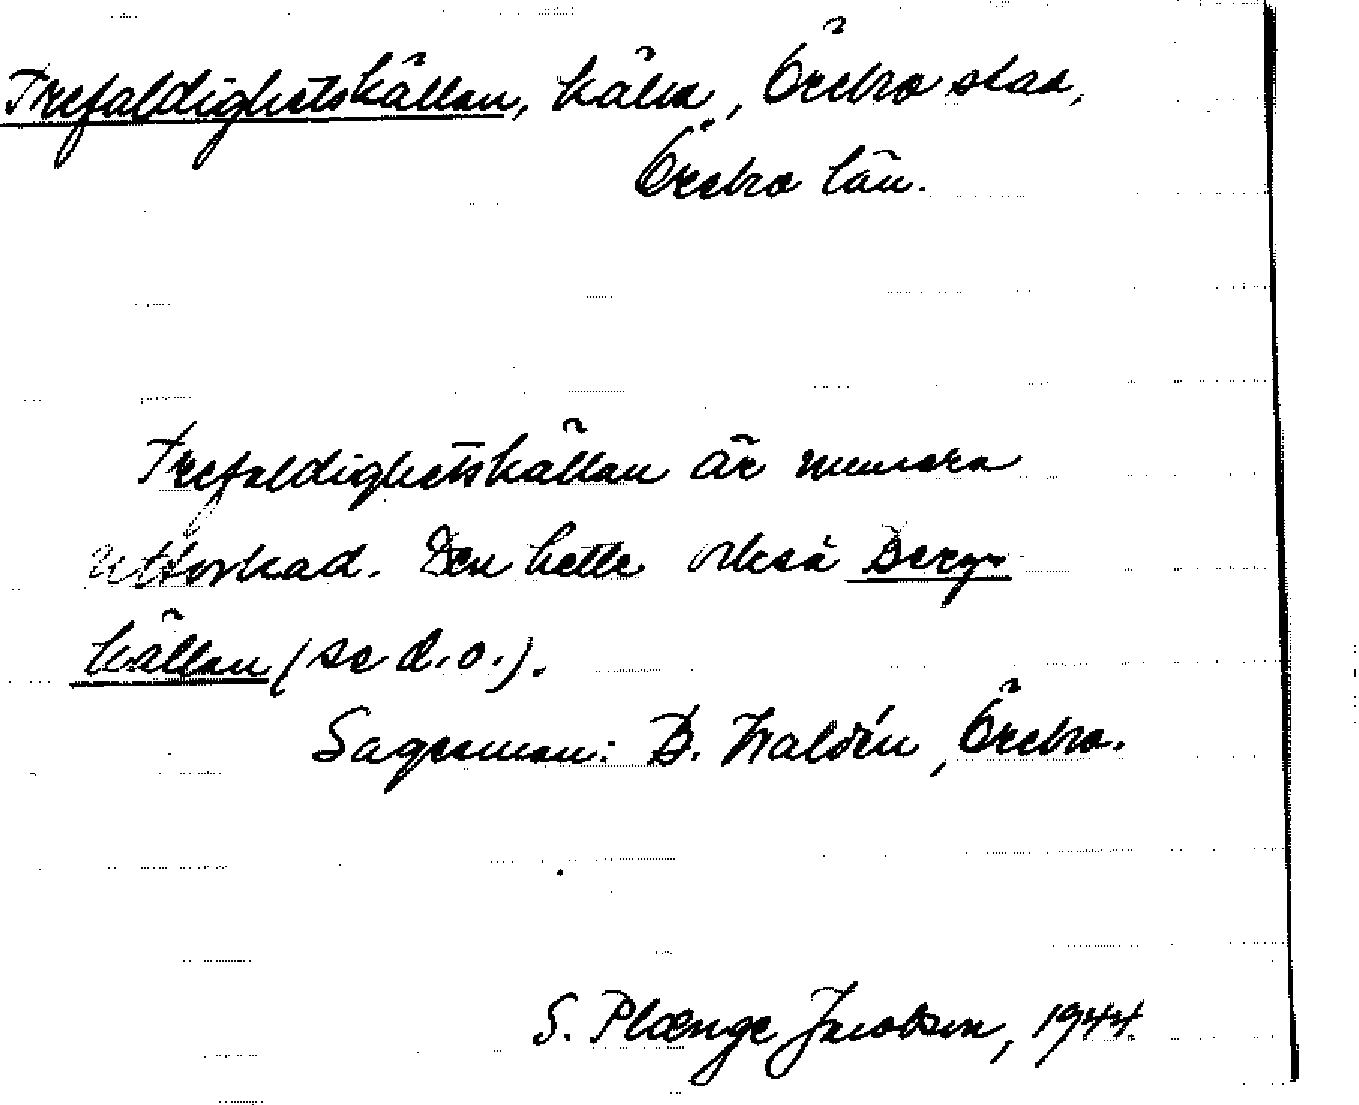 Trefaldighetskällan, källa, Örebro stad,
Örebro län.
Trefaldighetskällan är numera
uttorkad. Den hette också Bergs-
källan (se d.o.).
Sagesman: B. Waldén, Örebro.
S. Plænge Jacobson, 1944.